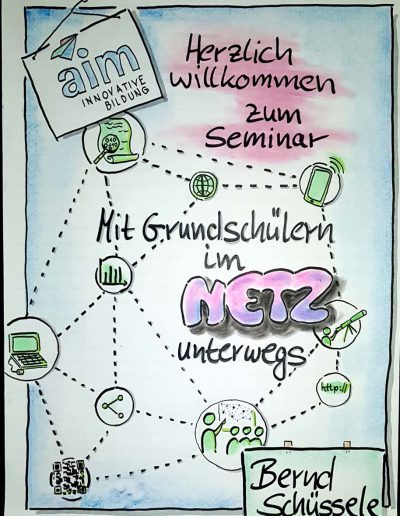 aim
INNOVATIVE
BILDUNG
Herzlich
willkommen
zum
Seminar
Mit Grundschülern
im
NETZ
unterwegs
http://
Bernd
Schüssele